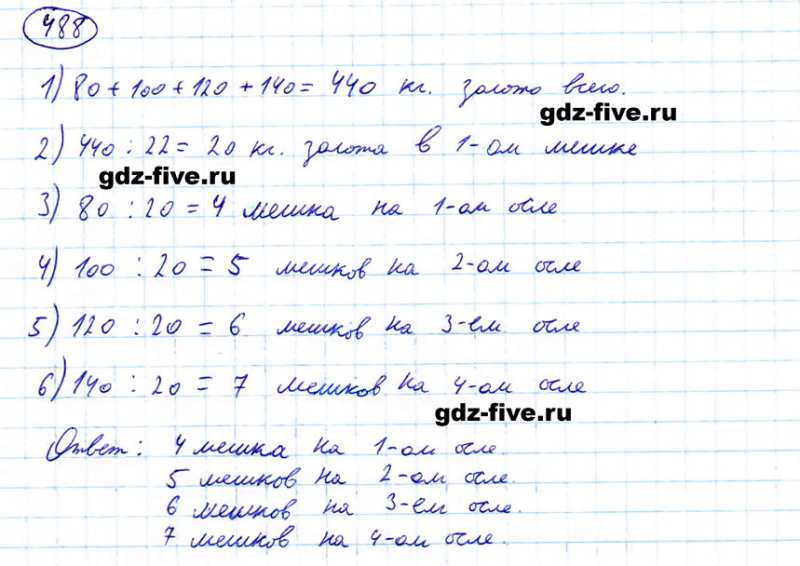 488
1) 80 + 100 + 120 + 140 = 440 кг. золото всего.
gdz-five.ru
2) 440 : 22 = 20 кг. золота в 1-ом мешке
gdz-five.ru
3) 80 : 20 = 4 мешка на 1-ом осле
4) 100 : 20 = 5 мешков на 2-ом осле
5) 120 : 20 = 6 мешков на 3-ем осле
6) 140 : 20 = 7 мешков на 4-ом осле
gdz-five.ru
Ответ: 4 мешка на 1-ом осле.
5 мешков на 2-ом осле.
6 мешков на 3-ем осле.
7 мешков на 4-ом осле.